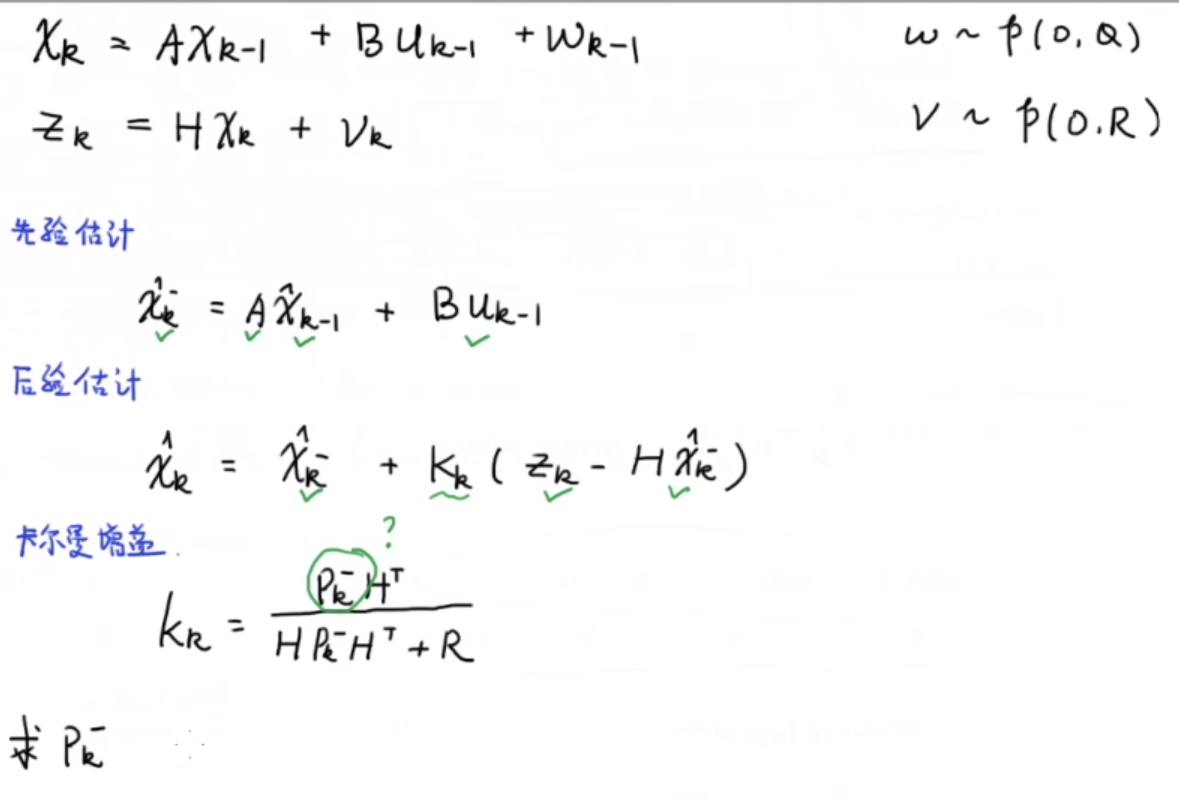 X_k = AX_{k-1} + BU_{k-1} + W_{k-1} w ~ p(0, Q)
Z_k = HX_k + V_k V ~ p(0.R)
先验估计
x̂_k^- = Ax̂_{k-1} + BU_{k-1}
后验估计
x̂_k = x̂_k^- + K_k ( Z_k - Hx̂_k^- )
卡尔曼增益.
?
P_k^- H^T
K_k =
HP_k^- H^T + R
求 P_k^-